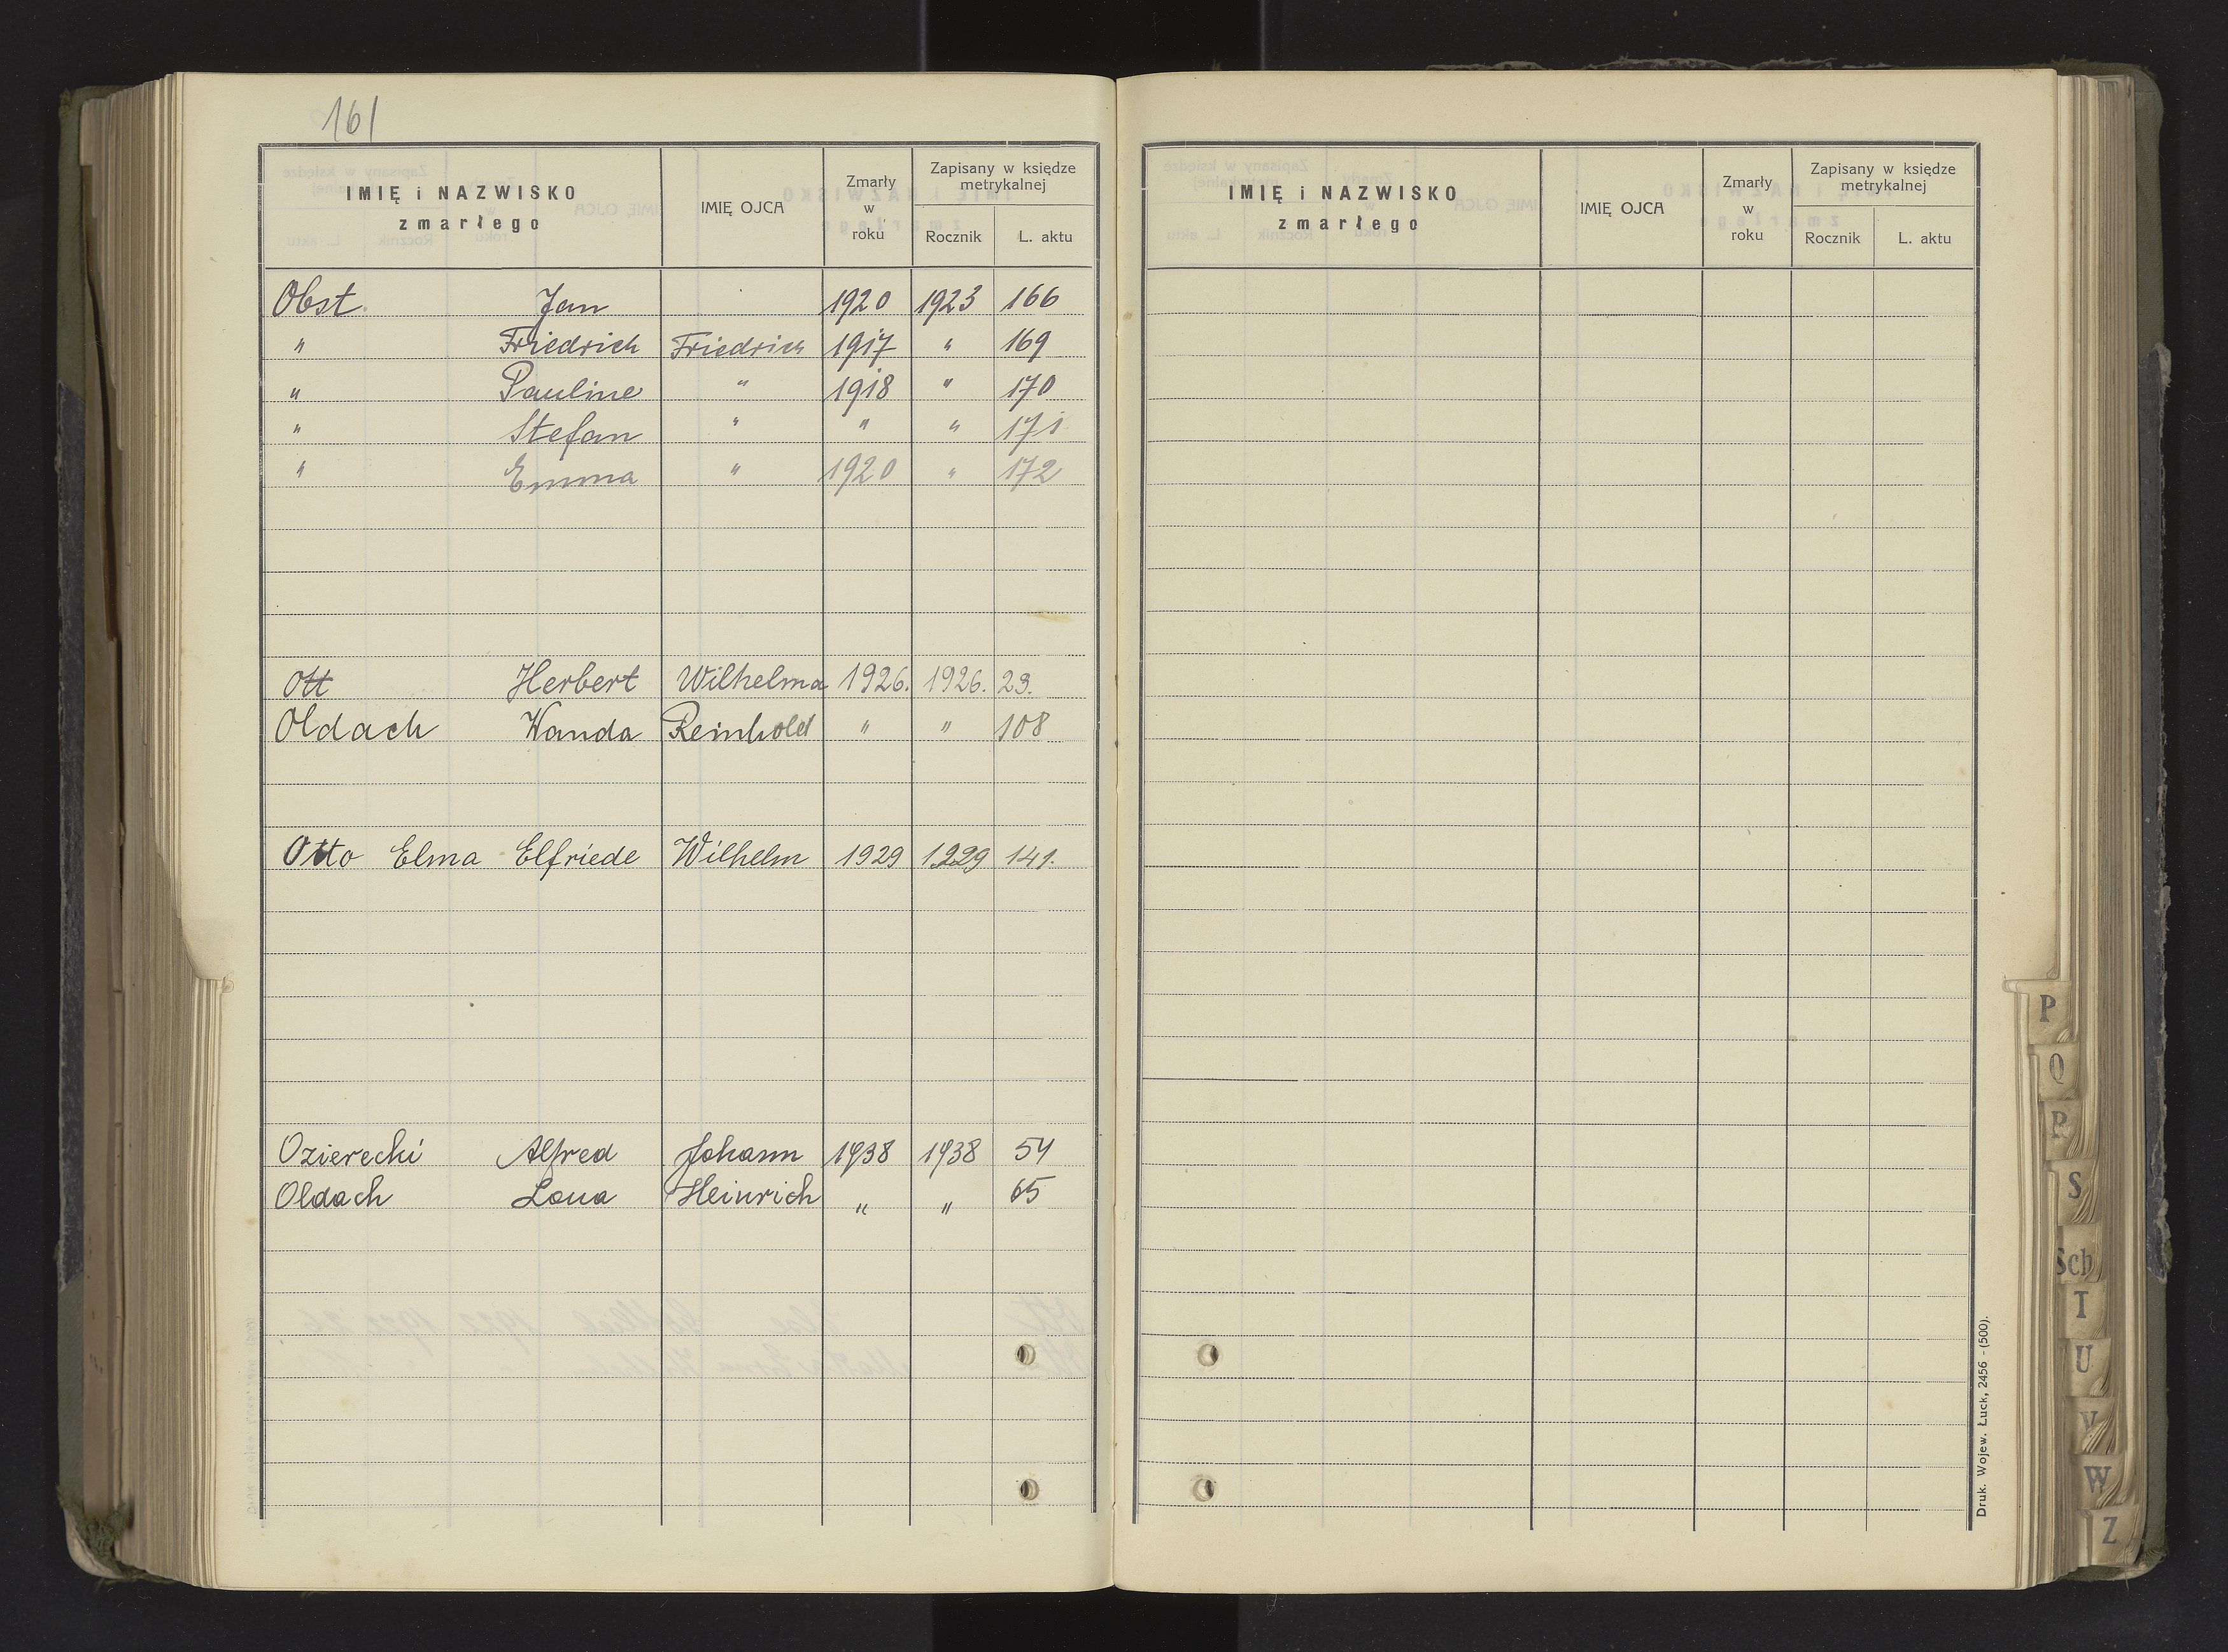 161
IMIĘ i NAZWISKO zmarłego IMIĘ OJCA Zmarły w roku Zapisany w księdze metrykalnej Rocznik L. aktu
Obst. Jan 1920 1923 166
" Friedrich Friedrich 1917 " 169
" Pauline " 1918 " 170
" Stefan " " " 171
" Emma " 1920 " 172
Ott Herbert Wilhelma 1926. 1926. 23.
Oldach Wanda Reinhold " " 108
Otto Elma Elfriede Wilhelm 1929 1929 141.
Ozierecki Alfred Johann 1938 1938 54
Oldach Lona Heinrich " " 65
IMIĘ i NAZWISKO zmarłego IMIĘ OJCA Zmarły w roku Zapisany w księdze metrykalnej Rocznik L. aktu
Druk. Wojew. Łuck, 2456 - (500).
P
Q
P
S
Sch
T
U
V
W
Z